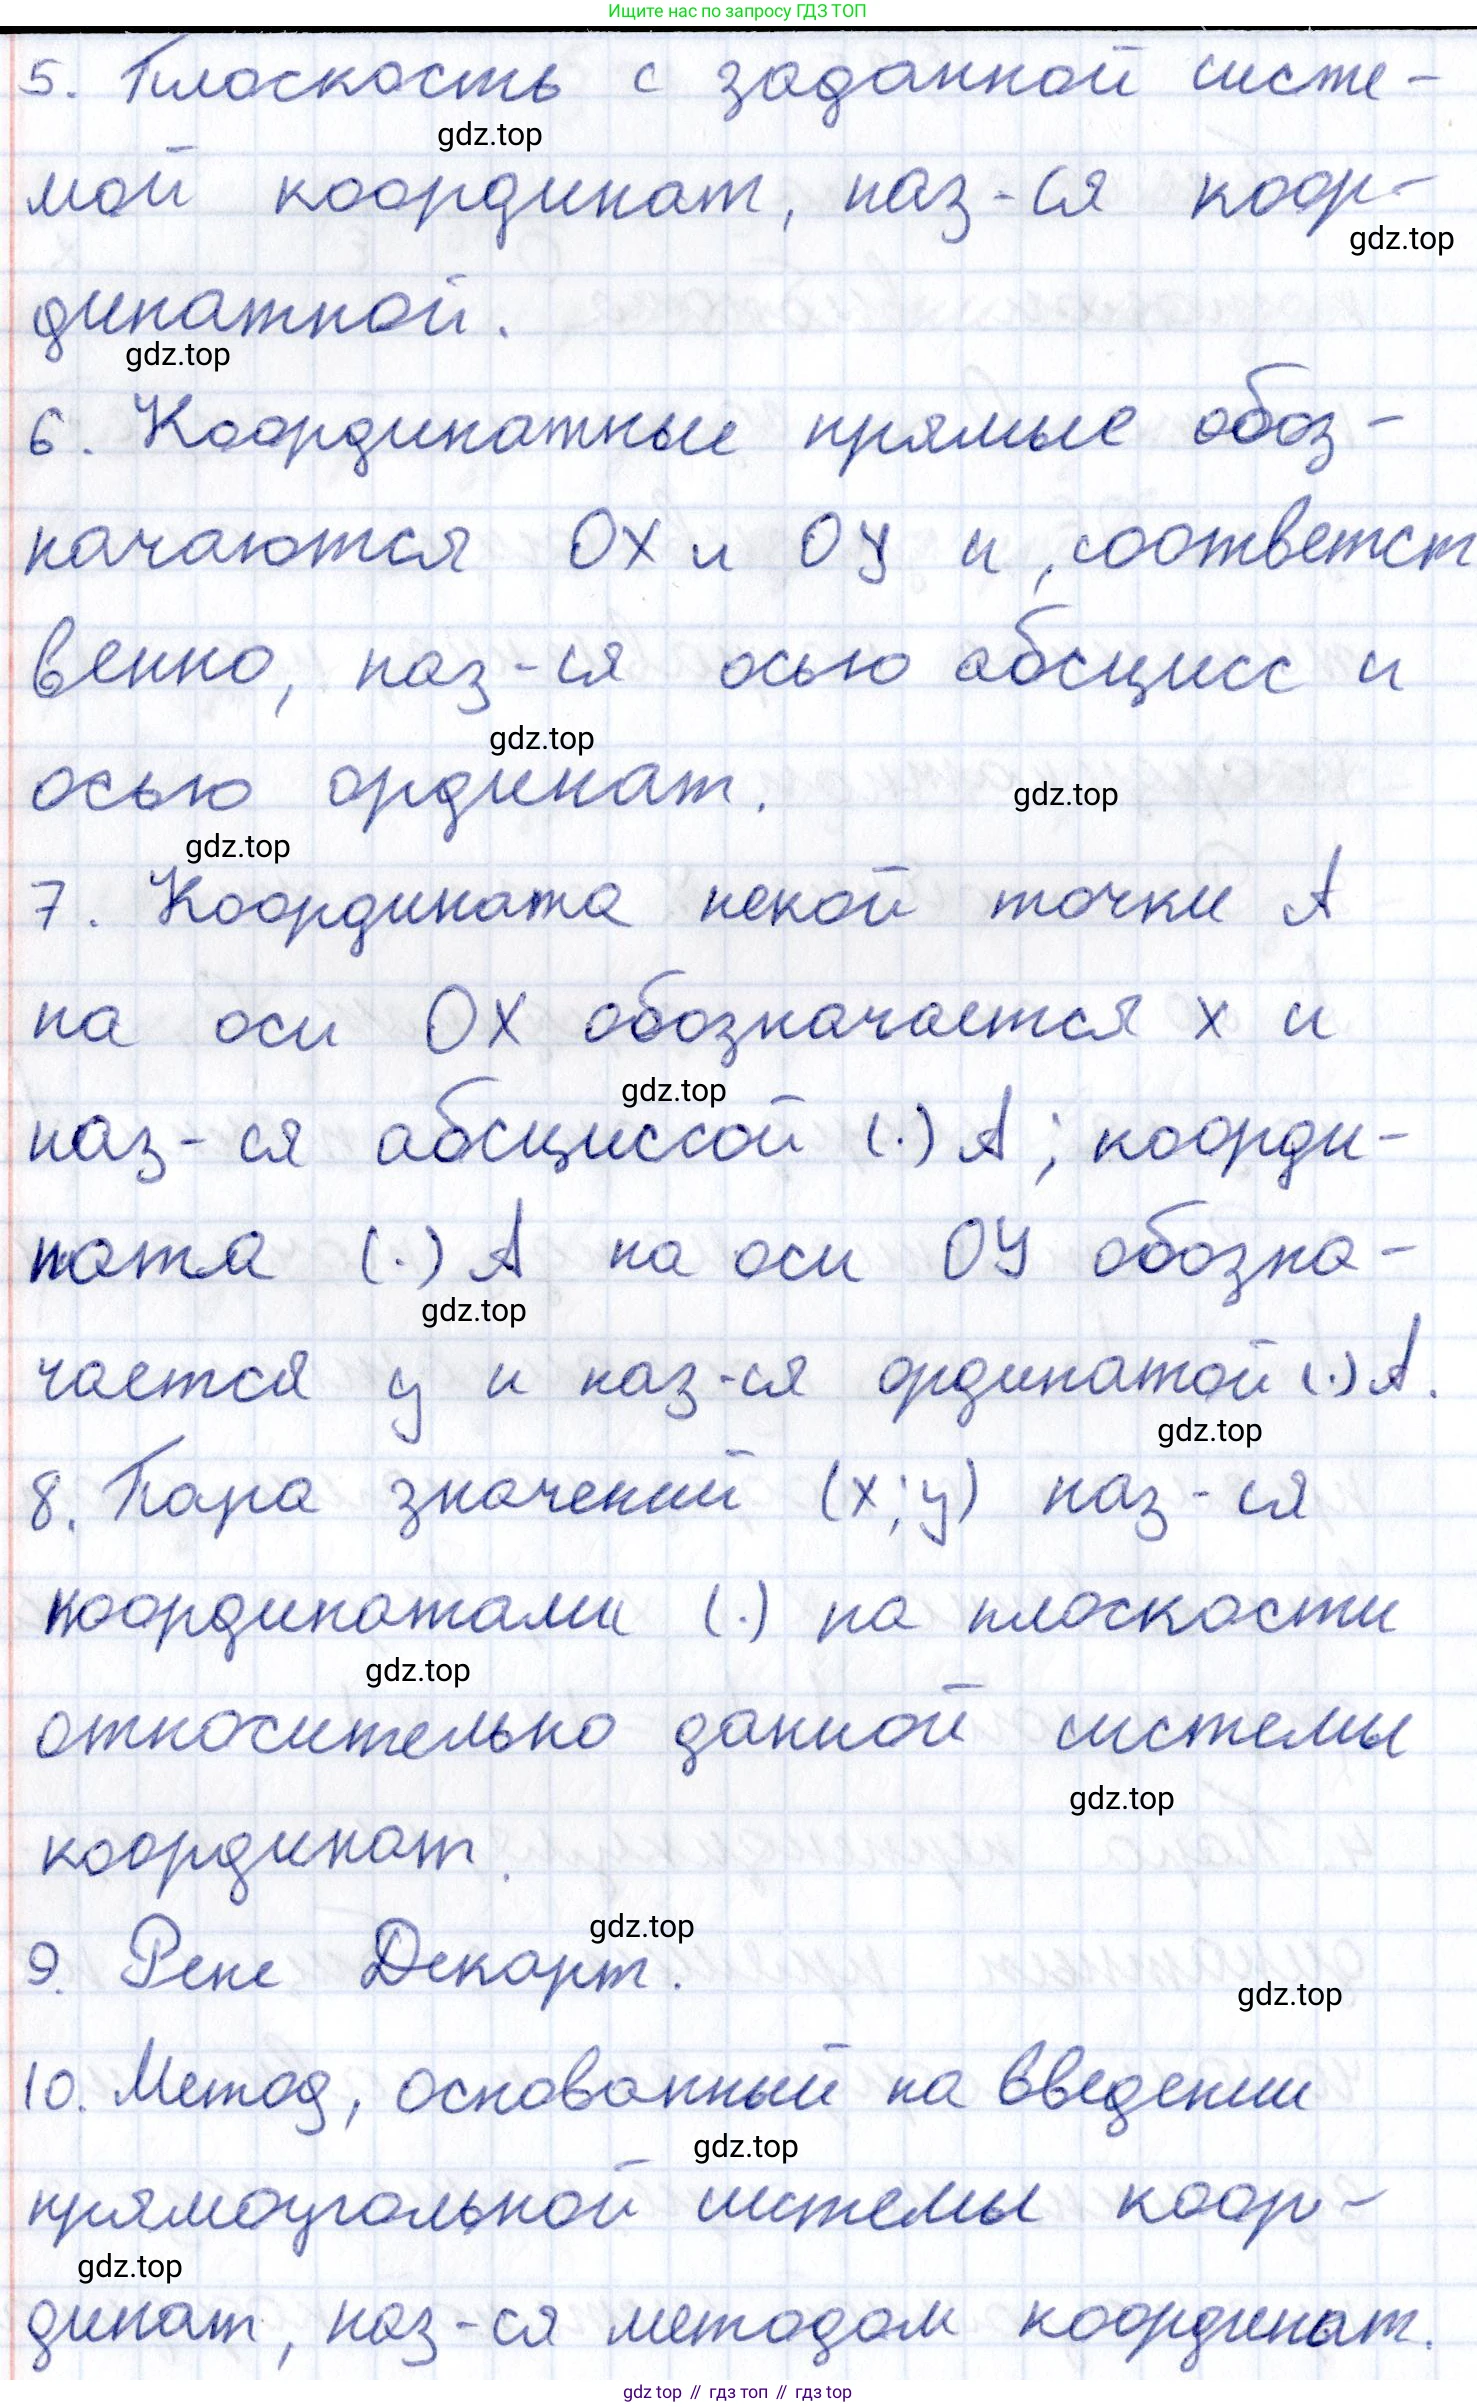 Ищите нас по запросу ГДЗ ТОП
5. Плоскость с заданной систе-
gdz.top
мой координат, наз-ся коор-
gdz.top
динатной.
gdz.top
6. Координатные прямые обоз-
начаются OX и OY и, соответст
венно, наз-ся осью абсцисс и
gdz.top
осью ординат.
gdz.top
gdz.top
7. Координата некой точки A
на оси OX обозначается x и
gdz.top
наз-ся абсциссой (·) A; коорди-
ната (·) A на оси OY обозна-
gdz.top
чается y и наз-ся ординатой (·) A.
gdz.top
8. Пара значений (x; y) наз-ся
координатами (·) на плоскости
gdz.top
относительно данной системы
gdz.top
координат.
gdz.top
9. Рене Декарт.
gdz.top
10. Метод, основанный на введении
gdz.top
прямоугольной системы коор-
gdz.top
динат, наз-ся методом координат.
gdz top // гдз топ // гдз top